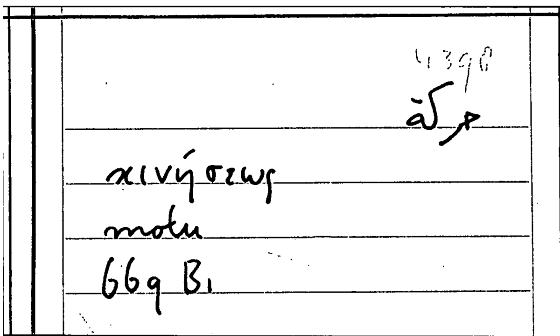 4398
κινήσεως
motu
669 B₁